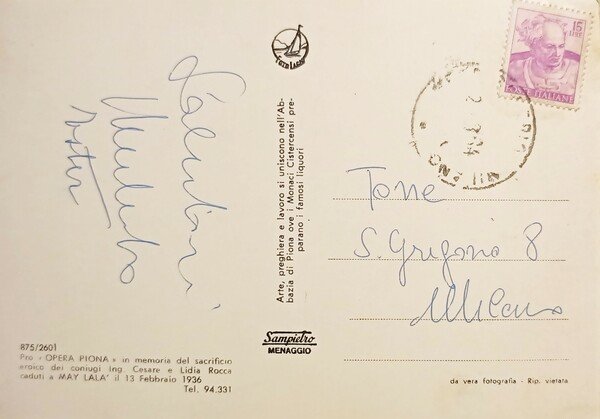 FOTO LARIO
15
LIRE
POSTE ITALIANE
Salutoni
Arte, preghiera e lavoro si uniscono nell'Ab-
bazia di Piona ove i Monaci Cistercensi pre-
parano i famosi liquori
S. Gregorio 8
Milano
Sampietro
MENAGGIO
875/2601
Pro «OPERA PIONA» in memoria del sacrificio
eroico dei coniugi Ing Cesare e Lidia Rocca
caduti a MAY LALA' il 13 Febbraio 1936
Tel. 94.331
da vera fotografia - Rip. vietata